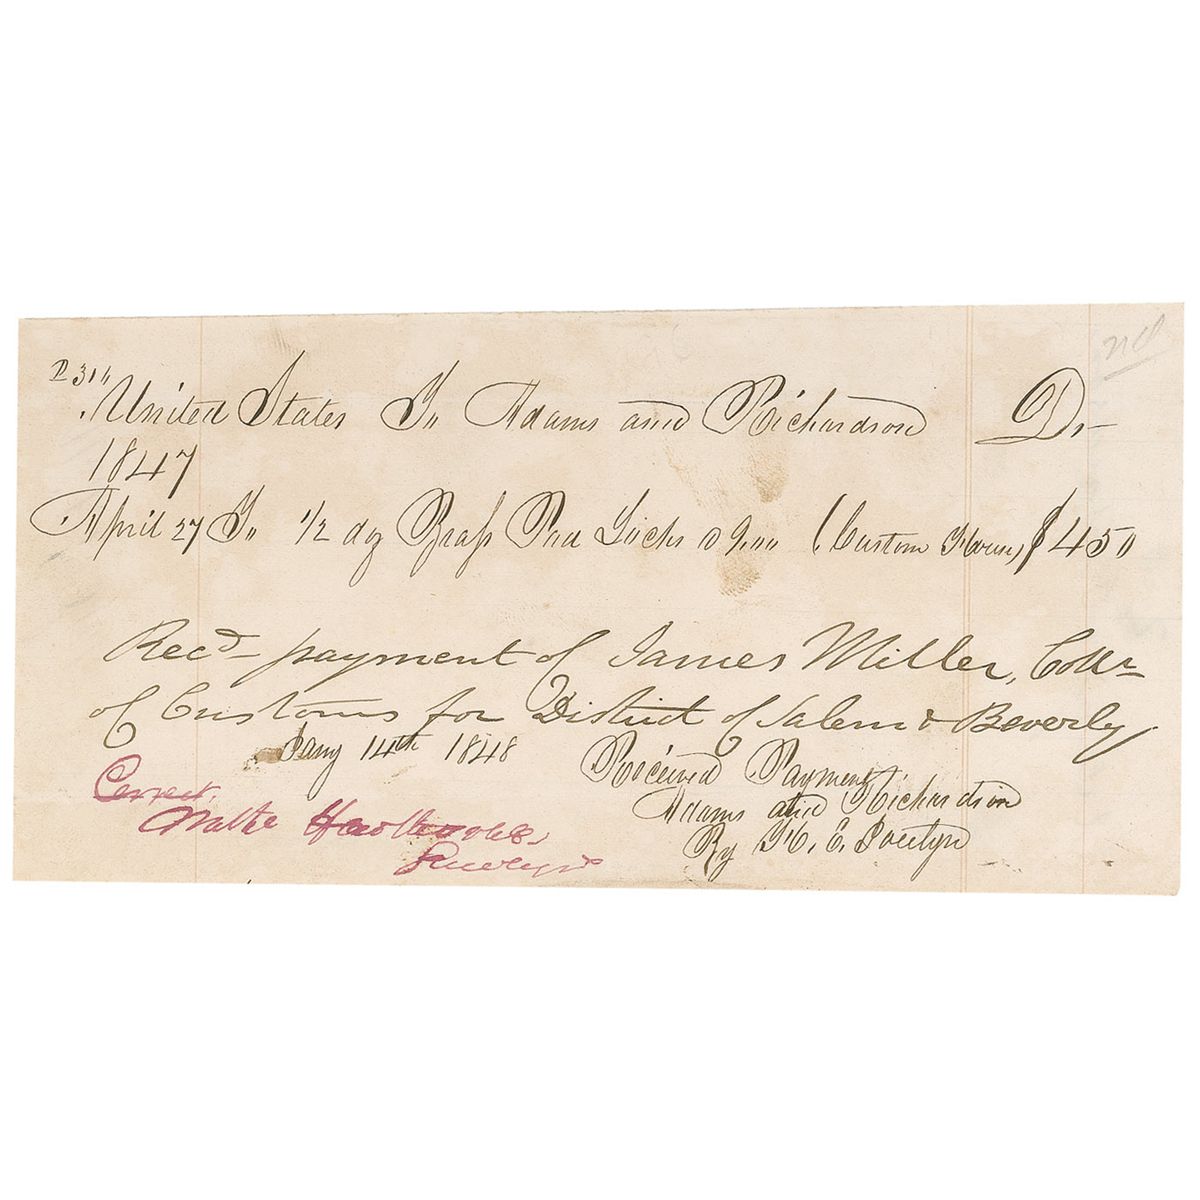 United States To Adams and Richardson Dr
1847
April 27 To 1/2 doz Brass Pad Locks @ 9.00 (Custom House) $4 50
Recd payment of James Miller, Collr
of Customs for District of Salem & Beverly
Jany 14th 1848
Received Payment
Adams and Richardson
By E. Jocelyn
Correct,
Nathl Hawthorne,
Surveyor